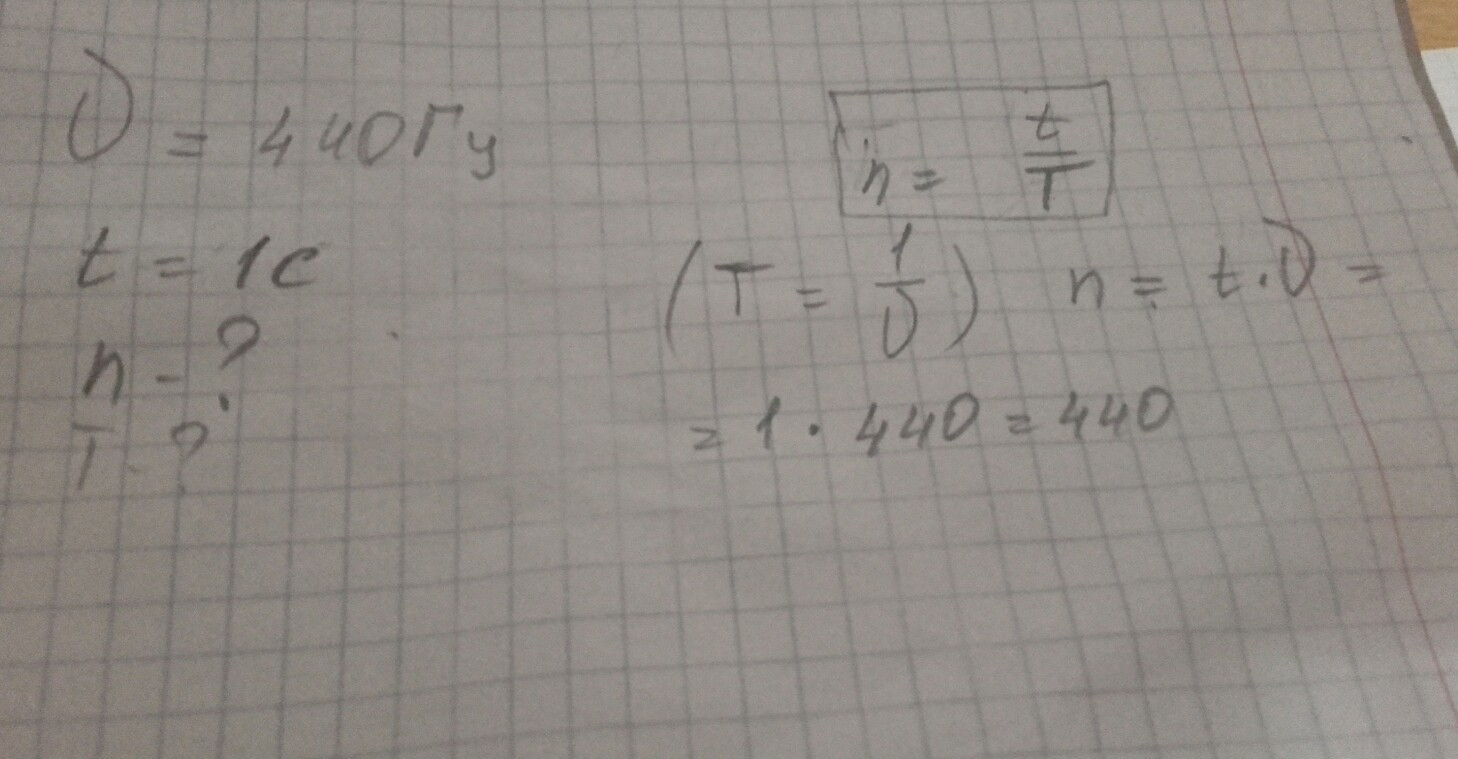 ν = 440 Гц
t = 1с
n - ?
T - ?
n = t/T
(T = 1/ν) n = t · ν =
= 1 · 440 = 440